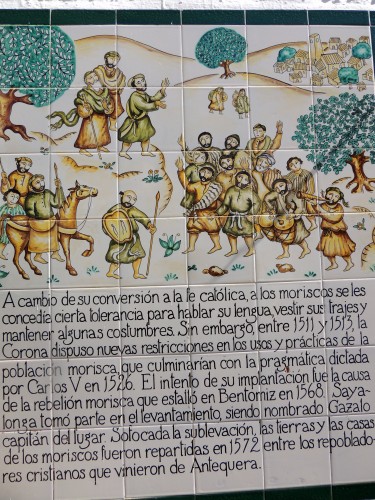 A cambio de su conversión a la fe católica, a los moriscos se les
concedía cierta tolerancia para hablar su lengua, vestir sus trajes y
mantener algunas costumbres. Sin embargo, entre 1511 y 1513, la
Corona dispuso nuevas restricciones en los usos y prácticas de la
población morisca, que culminarían con la pragmática dictada
por Carlos V en 1526. El intento de su implantación fue la causa
de la rebelión morisca que estalló en Bentomiz en 1568. Saya-
longa tomó parte en el levantamiento, siendo nombrado Gazalo
capitán del lugar. Sofocada la sublevación, las tierras y las casas
de los moriscos fueron repartidas en 1572 entre los repoblado-
res cristianos que vinieron de Antequera.